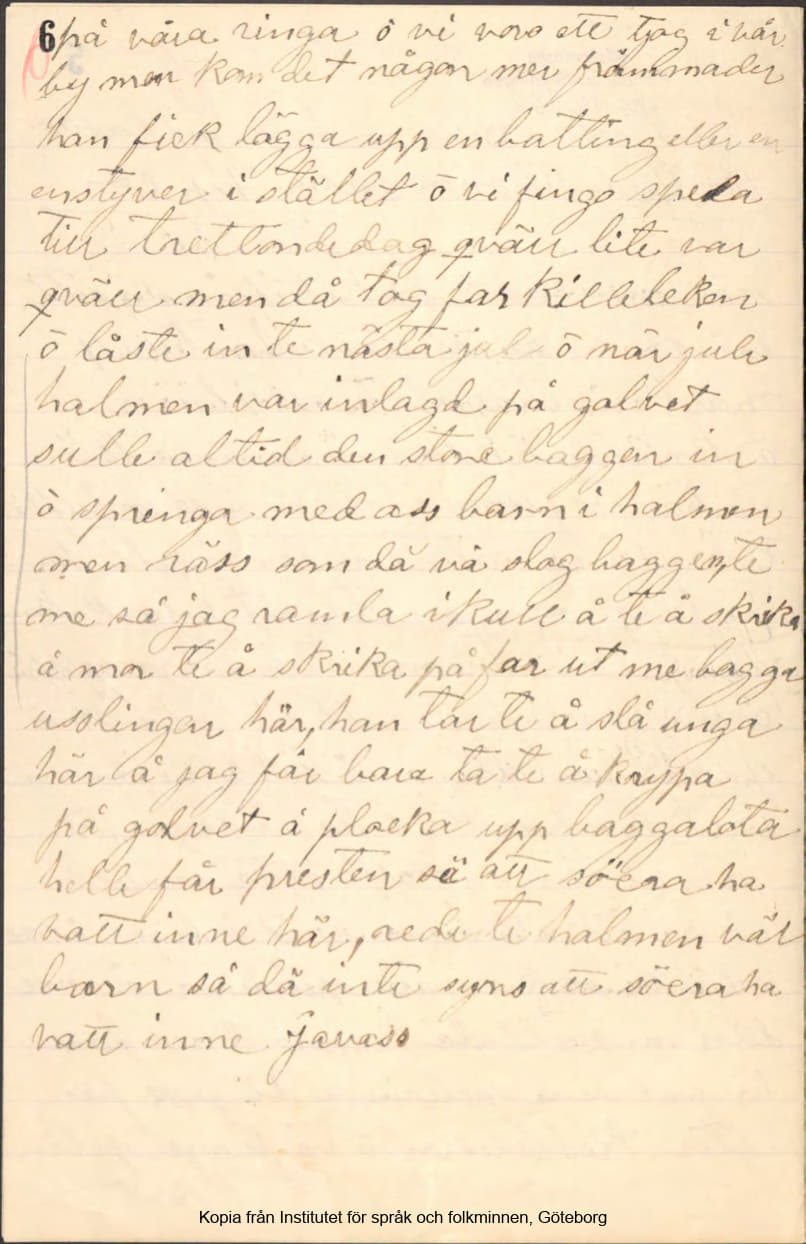 6 på våra ringa ö vi voro ett tjog i vår
by men kom det någon mer främmader
han fick lägga upp en batting eller en
enstyver i stället ö vi fingo spela
till trettondedag qväll lite var
qväll men då tog far Killeleken
ö låste in te nästa jul ö när jule
halmen var inlagd på golvet
sulle altid den store baggen in
ö springa med ass barn i halmen
men räss som dä va slog baggen, te
me så jag ramla ikull å te å skrika
å mor te å skrika på far ut me bagga
usslingen här, han tar te å slå unga
här å jag får bara ta te å krypa
på golvet å plocka upp baggalota
helle får presten sä att söera ha
vatt inne här, rede te halmen väl
barn så dä inte syns att söera ha
vatt inne javass
Kopia från Institutet för språk och folkminnen, Göteborg